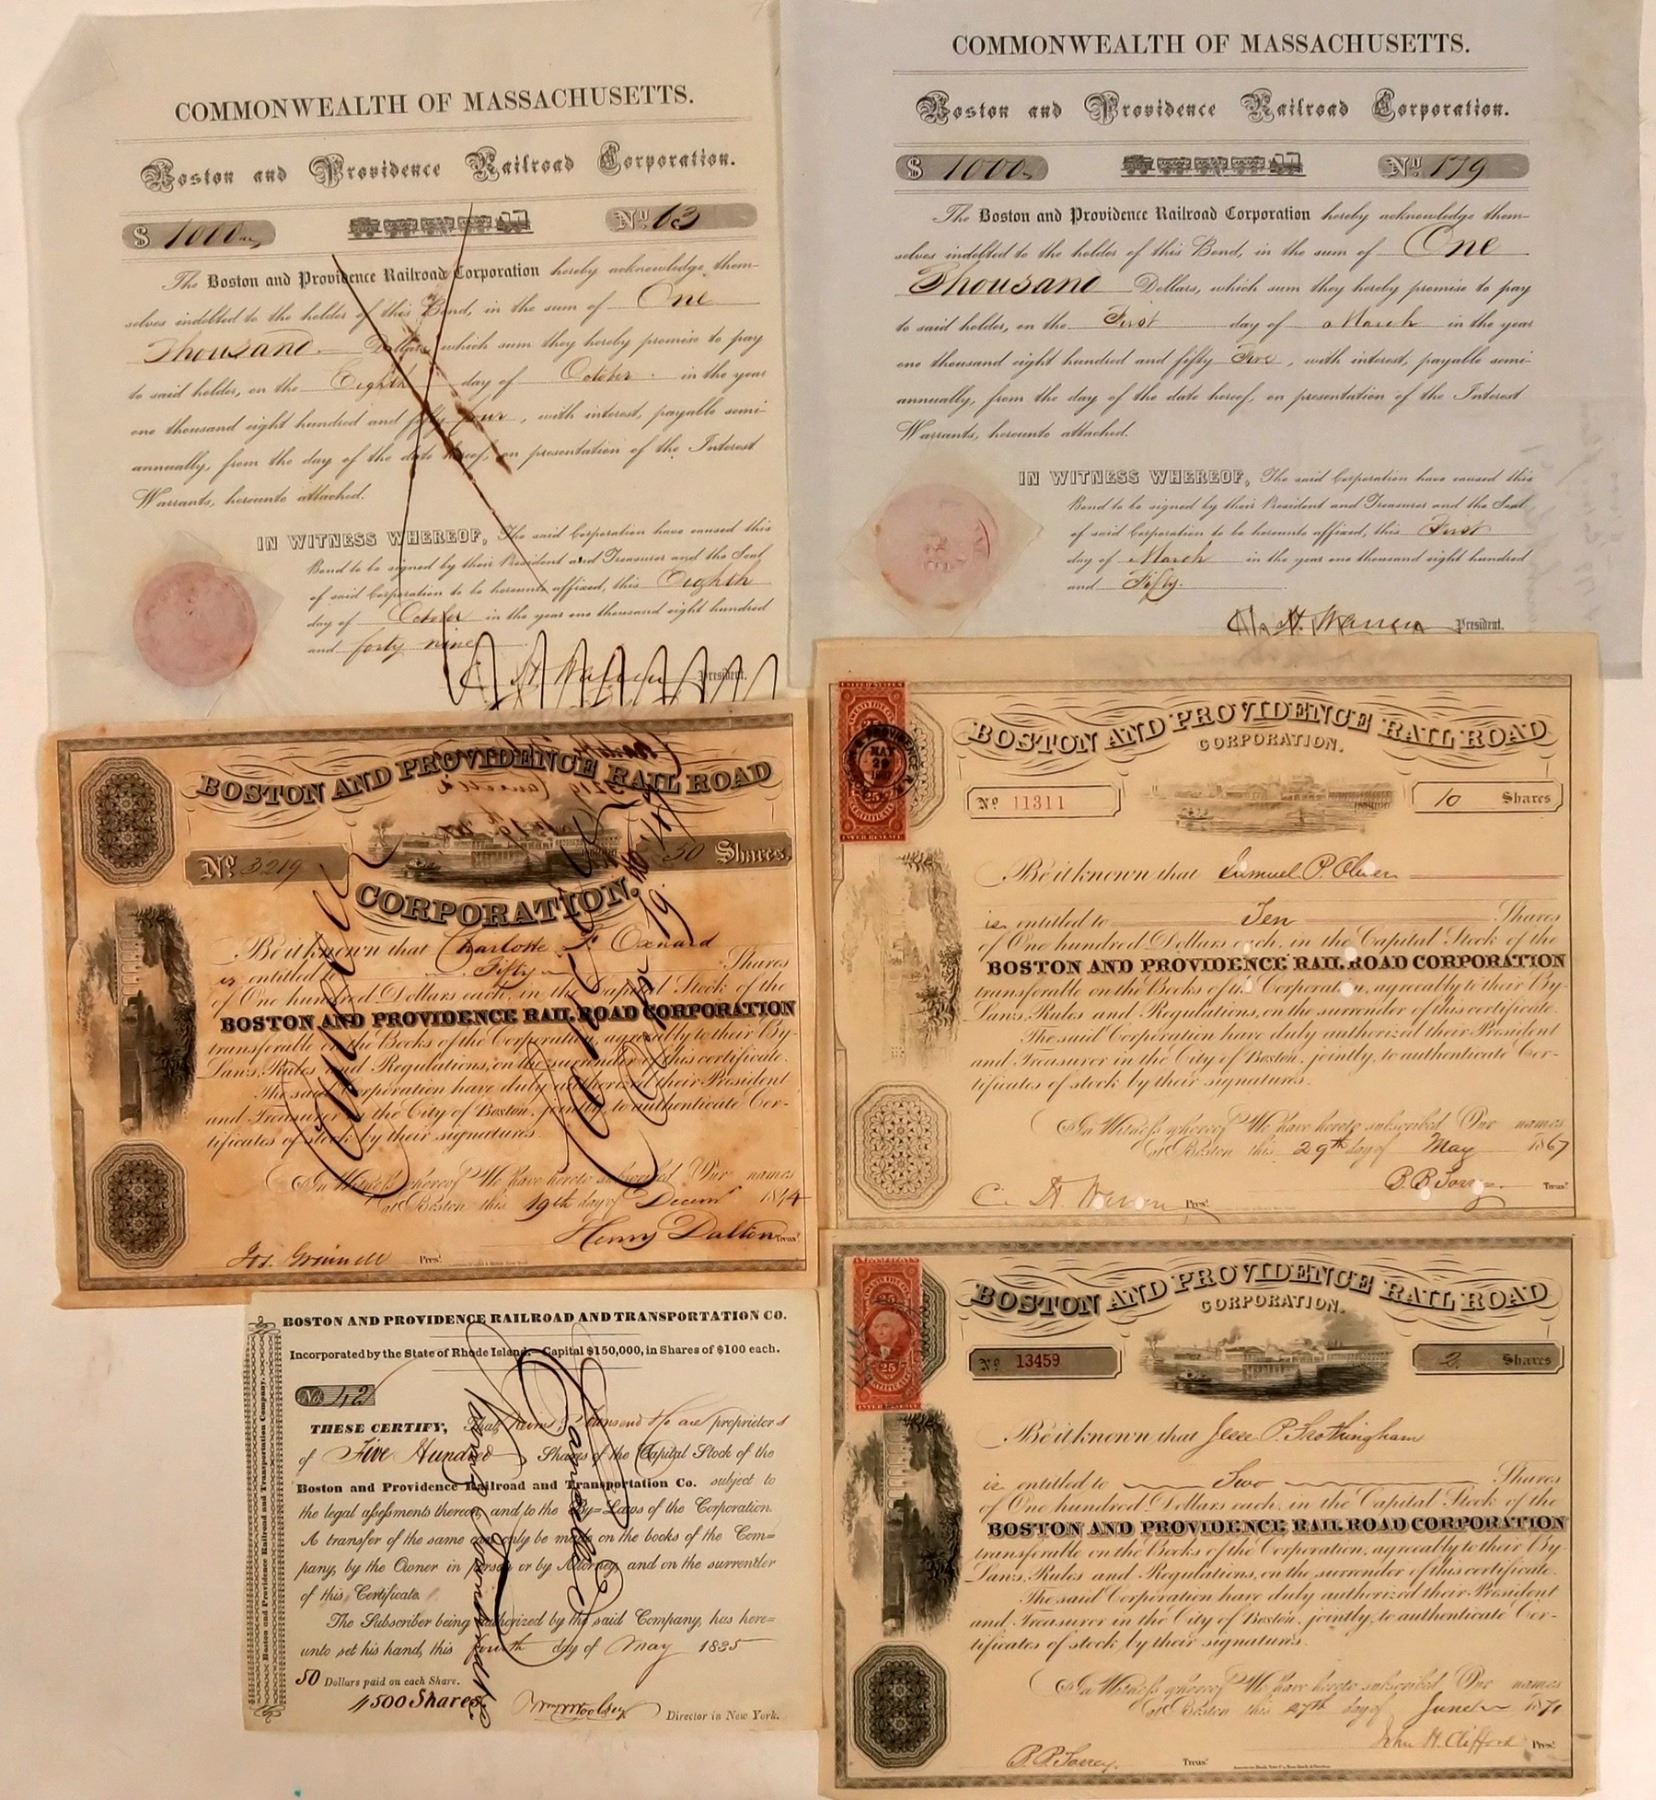 COMMONWEALTH OF MASSACHUSETTS.
Boston and Providence Railroad Corporation.
$ 1000 Nº 63
The Boston and Providence Railroad Corporation hereby acknowledge them-
selves indebted to the holder of this Bond, in the sum of One
Thousand Dollars, which sum they hereby promise to pay
to said holder, on the Eighth day of October in the year
one thousand eight hundred and fifty four, with interest, payable semi-
annually, from the day of the date hereof, on presentation of the Interest
Warrants, hereunto attached.
IN WITNESS WHEREOF, The said Corporation have caused this
Bond to be signed by their President and Treasurer and the Seal
of said Corporation to be hereunto affixed, this Eighth
day of October in the year one thousand eight hundred
and forty nine
C. H. Warren President.
COMMONWEALTH OF MASSACHUSETTS.
Boston and Providence Railroad Corporation.
$ 1000 Nº 179
The Boston and Providence Railroad Corporation hereby acknowledge them-
selves indebted to the holder of this Bond, in the sum of One
Thousand Dollars, which sum they hereby promise to pay
to said holder, on the First day of March in the year
one thousand eight hundred and fifty Five, with interest, payable semi-
annually, from the day of the date hereof, on presentation of the Interest
Warrants, hereunto attached.
IN WITNESS WHEREOF, The said Corporation have caused this
Bond to be signed by their President and Treasurer and the Seal
of said Corporation to be hereunto affixed, this First
day of March in the year one thousand eight hundred
and Fifty.
C. H. Warren President.
BOSTON AND PROVIDENCE RAIL ROAD
Nº 3219 50 Shares
CORPORATION.
Be it known that Charlotte F. Oxnard
is entitled to Fifty Shares
of One hundred Dollars each, in the Capital Stock of the
BOSTON AND PROVIDENCE RAIL ROAD CORPORATION
transferable on the Books of the Corporation, agreeably to their By-
Laws, Rules and Regulations, on the surrender of this certificate.
The said Corporation have duly authorized their President
and Treasurer in the City of Boston, jointly, to authenticate Cer-
tificates of stock by their signatures.
In Witness whereof We have hereto subscribed Our names
at Boston this 19th day of Decemr 1844
Henry Dalton Treasr
Jos. Grinnell Prest
Cancelled
UNITED STATES
INTER. REVENUE
MAY
29
BOSTON AND PROVIDENCE RAIL ROAD
CORPORATION.
Nº 11311 10 Shares
Be it known that Samuel P. Oliver
is entitled to Ten Shares
of One hundred Dollars each, in the Capital Stock of the
BOSTON AND PROVIDENCE RAIL ROAD CORPORATION
transferable on the Books of the Corporation, agreeably to their By-
Laws, Rules and Regulations, on the surrender of this certificate.
The said Corporation have duly authorized their President
and Treasurer in the City of Boston, jointly, to authenticate Cer-
tificates of stock by their signatures.
In Witness whereof We have hereto subscribed Our names
at Boston this 29th day of May 1867
B. B. Torrey Treasr
C. H. Warren Prest
BOSTON AND PROVIDENCE RAILROAD AND TRANSPORTATION CO.
Incorporated by the State of Rhode Island.—Capital $150,000, in Shares of $100 each.
No. 42
THESE CERTIFY, That Townsend & Co are proprietors
of Five Hundred Shares of the Capital Stock of the
Boston and Providence Railroad and Transportation Co. subject to
the legal assessments thereon, and to the By-Laws of the Corporation.
A transfer of the same can only be made on the books of the Com-
pany, by the Owner in person or by Attorney, and on the surrender
of this Certificate.
The Subscriber being authorized by the said Company, has here-
unto set his hand, this fourth day of May 1835
50 Dollars paid on each Share.
500 Shares Wm W Woolsey Director in New York.
Boston and Providence Railroad and Transportation Company.
25 25
BOSTON AND PROVIDENCE RAIL ROAD
CORPORATION.
Nº 13459 2 Shares
Be it known that Jesse P. Frothingham
is entitled to Two Shares
of One hundred Dollars each, in the Capital Stock of the
BOSTON AND PROVIDENCE RAIL ROAD CORPORATION
transferable on the Books of the Corporation, agreeably to their By-
Laws, Rules and Regulations, on the surrender of this certificate.
The said Corporation have duly authorized their President
and Treasurer in the City of Boston, jointly, to authenticate Cer-
tificates of stock by their signatures.
In Witness whereof We have hereto subscribed Our names
at Boston this 27th day of June 1871
John H. Clifford Prest
B. B. Torrey Treasr